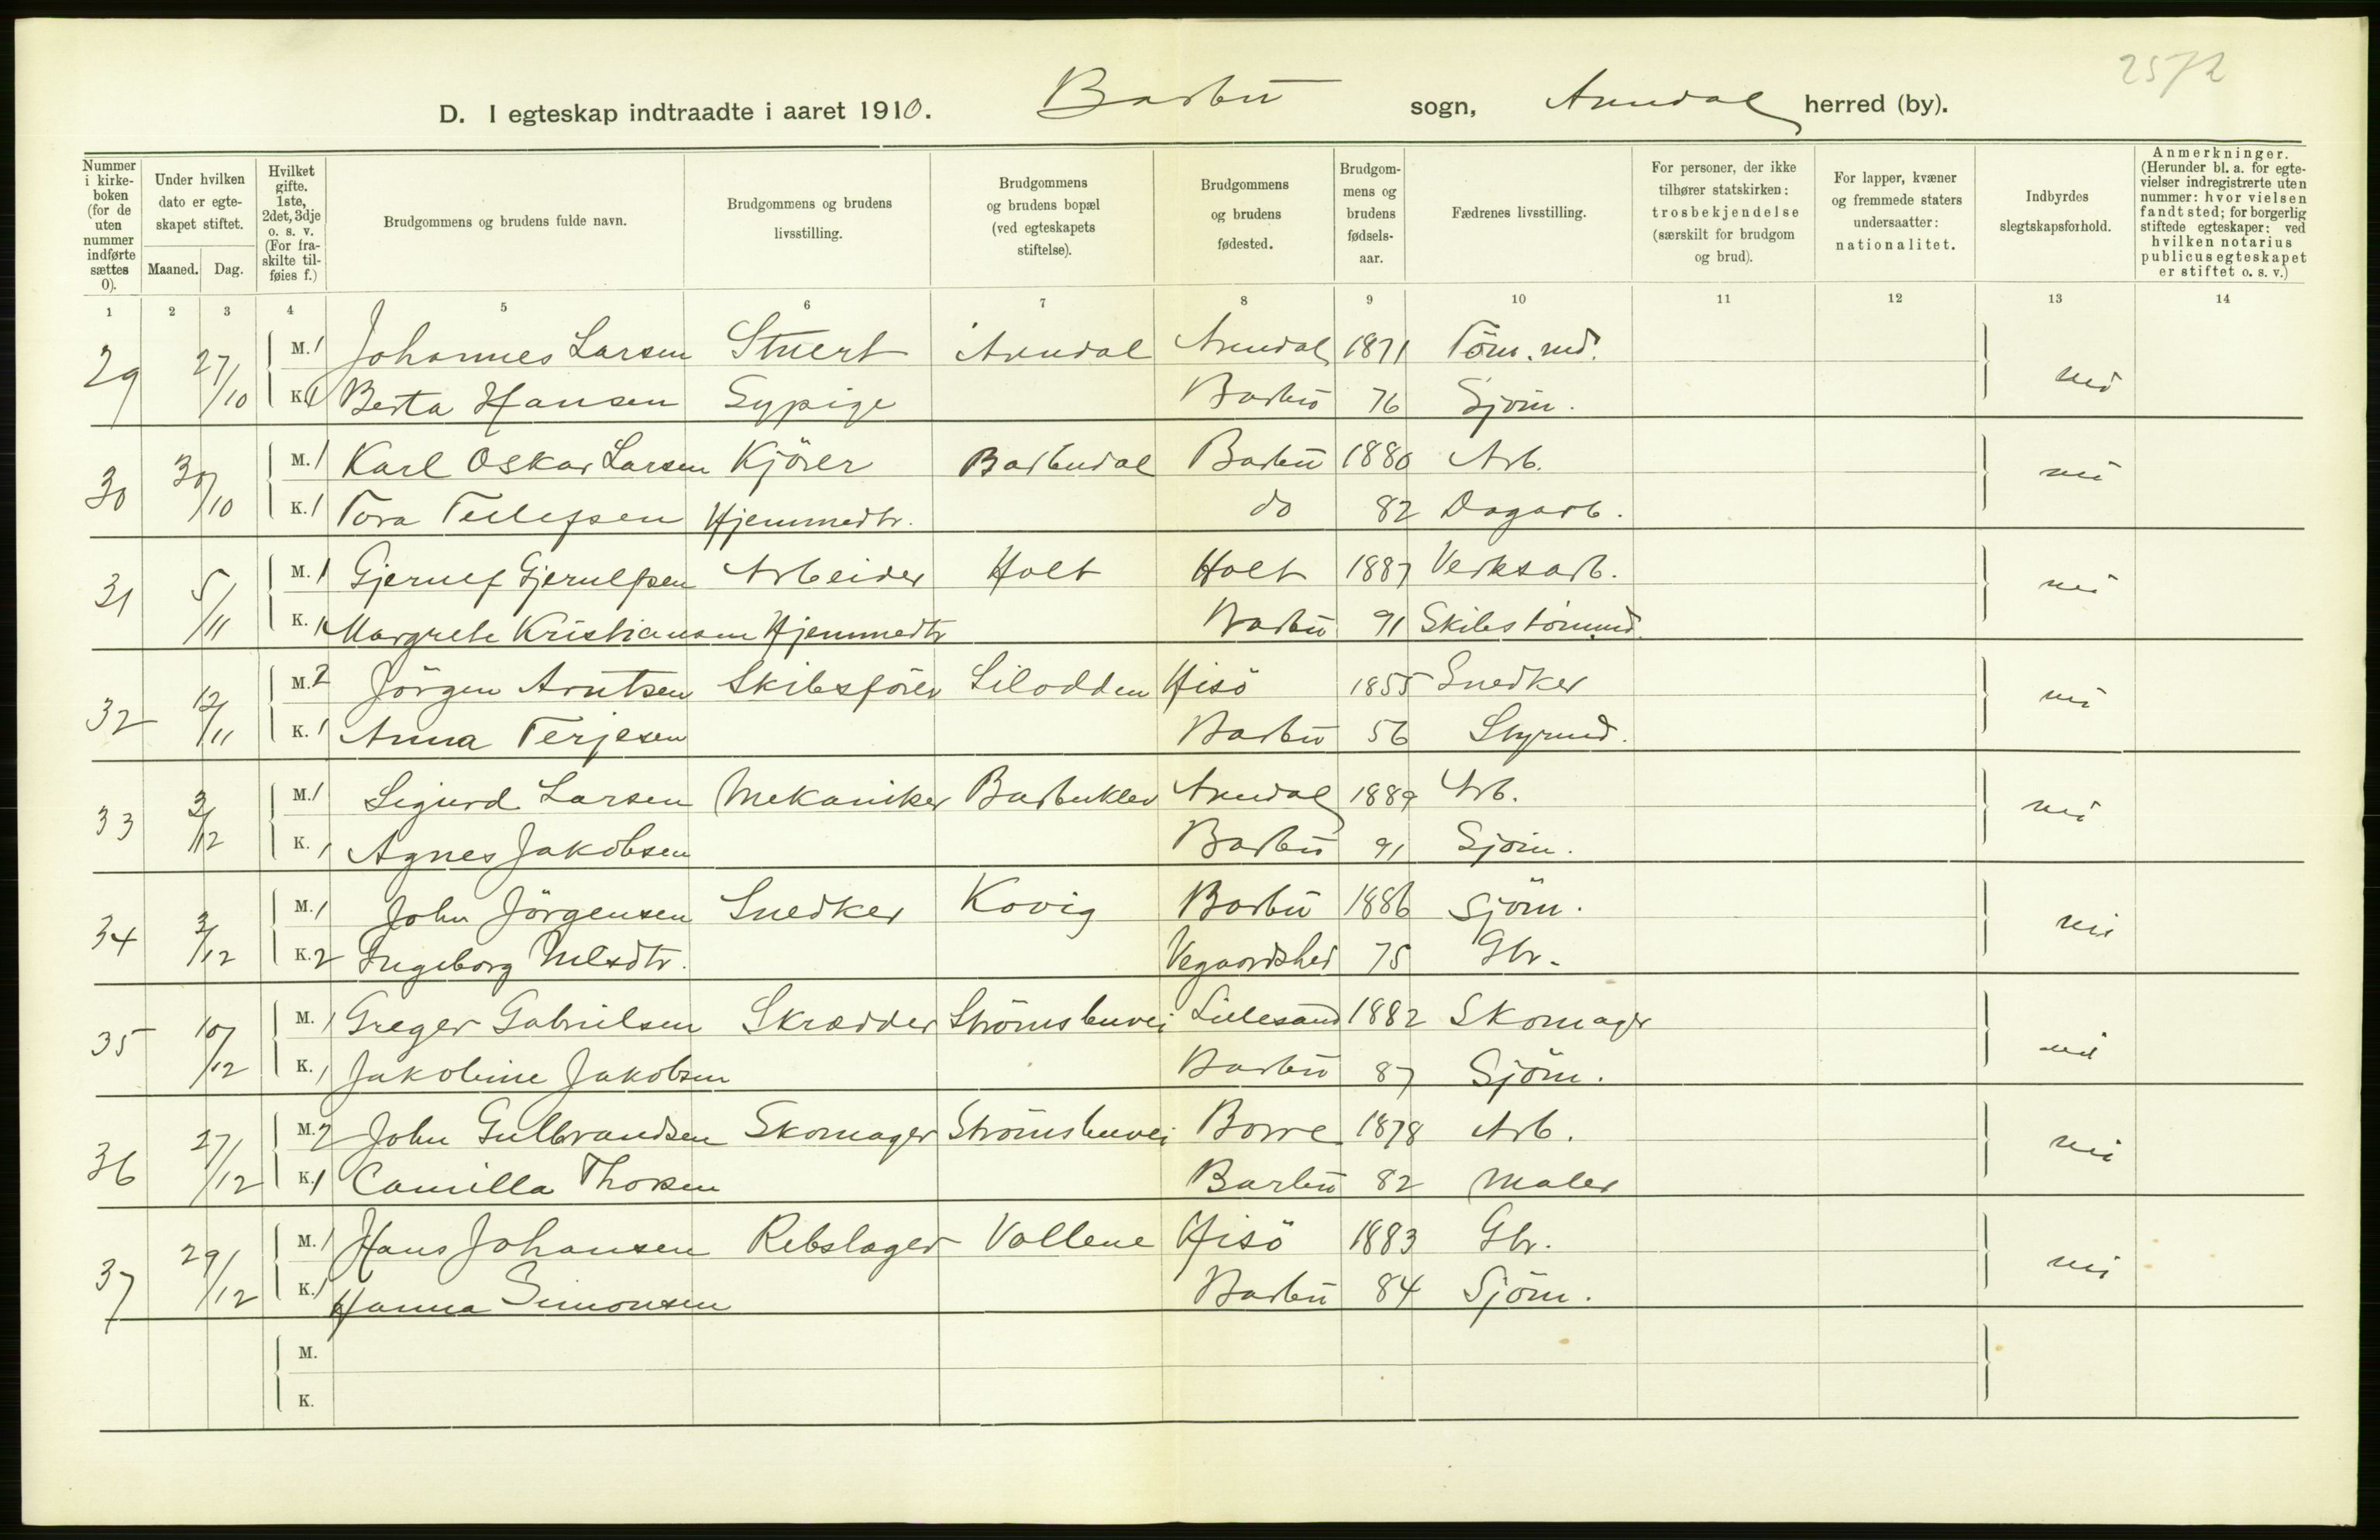 2572
D. I egteskap indtraadte i aaret 1910. Barbu sogn, Arendal herred (by).
Nummer i kirkeboken (for de uten nummer indførte sættes 0).
Under hvilken dato er egteskapet stiftet.
Maaned. Dag.
Hvilket gifte. 1ste, 2det, 3dje o. s. v. (For fraskilte tilføies f.)
Brudgommens og brudens fulde navn.
Brudgommens og brudens livsstilling.
Brudgommens og brudens bopæl (ved egteskapets stiftelse).
Brudgommens og brudens fødested.
Brudgommens og brudens fødselsaar.
Fædrenes livsstilling.
For personer, der ikke tilhører statskirken: trosbekjendelse (særskilt for brudgom og brud).
For lapper, kvæner og fremmede staters undersaatter: nationalitet.
Indbyrdes slegtskapsforhold.
Anmerkninger. (Herunder bl. a. for egtevielser indregistrerte uten nummer: hvor vielsen fandt sted; for borgerlig stiftede egteskaper: ved hvilken notarius publicus egteskapet er stiftet o. s. v.)
1 2 3 4 5 6 7 8 9 10 11 12 13 14
29 27/10 M. 1 Johannes Larsen Stuert Arendal Arendal 1871 Töm.md. nei
K. 1 Berta Hansen Sypige Barbu 76 Sjöm.
30 30/10 M. 1 Karl Oskar Larsen Kjörer Barbudal Barbu 1880 Arb. nei
K. 1 Tora Tellefsen Hjemmedtr. do 82 Dagarb.
31 5/11 M. 1 Gjerulf Gjerulfsen Arbeider Holt Holt 1887 Verksarb. nei
K. 1 Margrete Kristiansen Hjemmedtr Barbu 91 Skibstömmd.
32 12/11 M. 2 Jörgen Arntsen Skibsförer Lilodden Hisö 1855 Snedker nei
K. 1 Anna Terjesen Barbu 56 Styrmd.
33 3/12 M. 1 Sigurd Larsen Mekaniker Barbuklev Arendal 1889 Arb. nei
K. 1 Agnes Jakobsen Barbu 91 Sjöm.
34 3/12 M. 1 John Jörgensen Snedker Kovig Barbu 1886 Sjöm. nei
K. 2 Ingeborg Nilsdtr. Vegaardshei 75 Gbr.
35 10/12 M. 1 Greger Gabrielsen Skrædder Strömsbuvei Lillesand 1882 Skomager nei
K. 1 Jakobine Jakobsen Barbu 87 Sjöm.
36 27/12 M. 2 John Gulbrandsen Skomager Strömsbuvei Borre 1878 Arb. nei
K. 1 Camilla Thorsen Barbu 82 Maler
37 29/12 M. 1 Hans Johansen Rebslager Vollene Hisö 1883 Gbr. nei
K. 1 Hanna Simonsen Barbu 84 Sjöm.
M.
K.